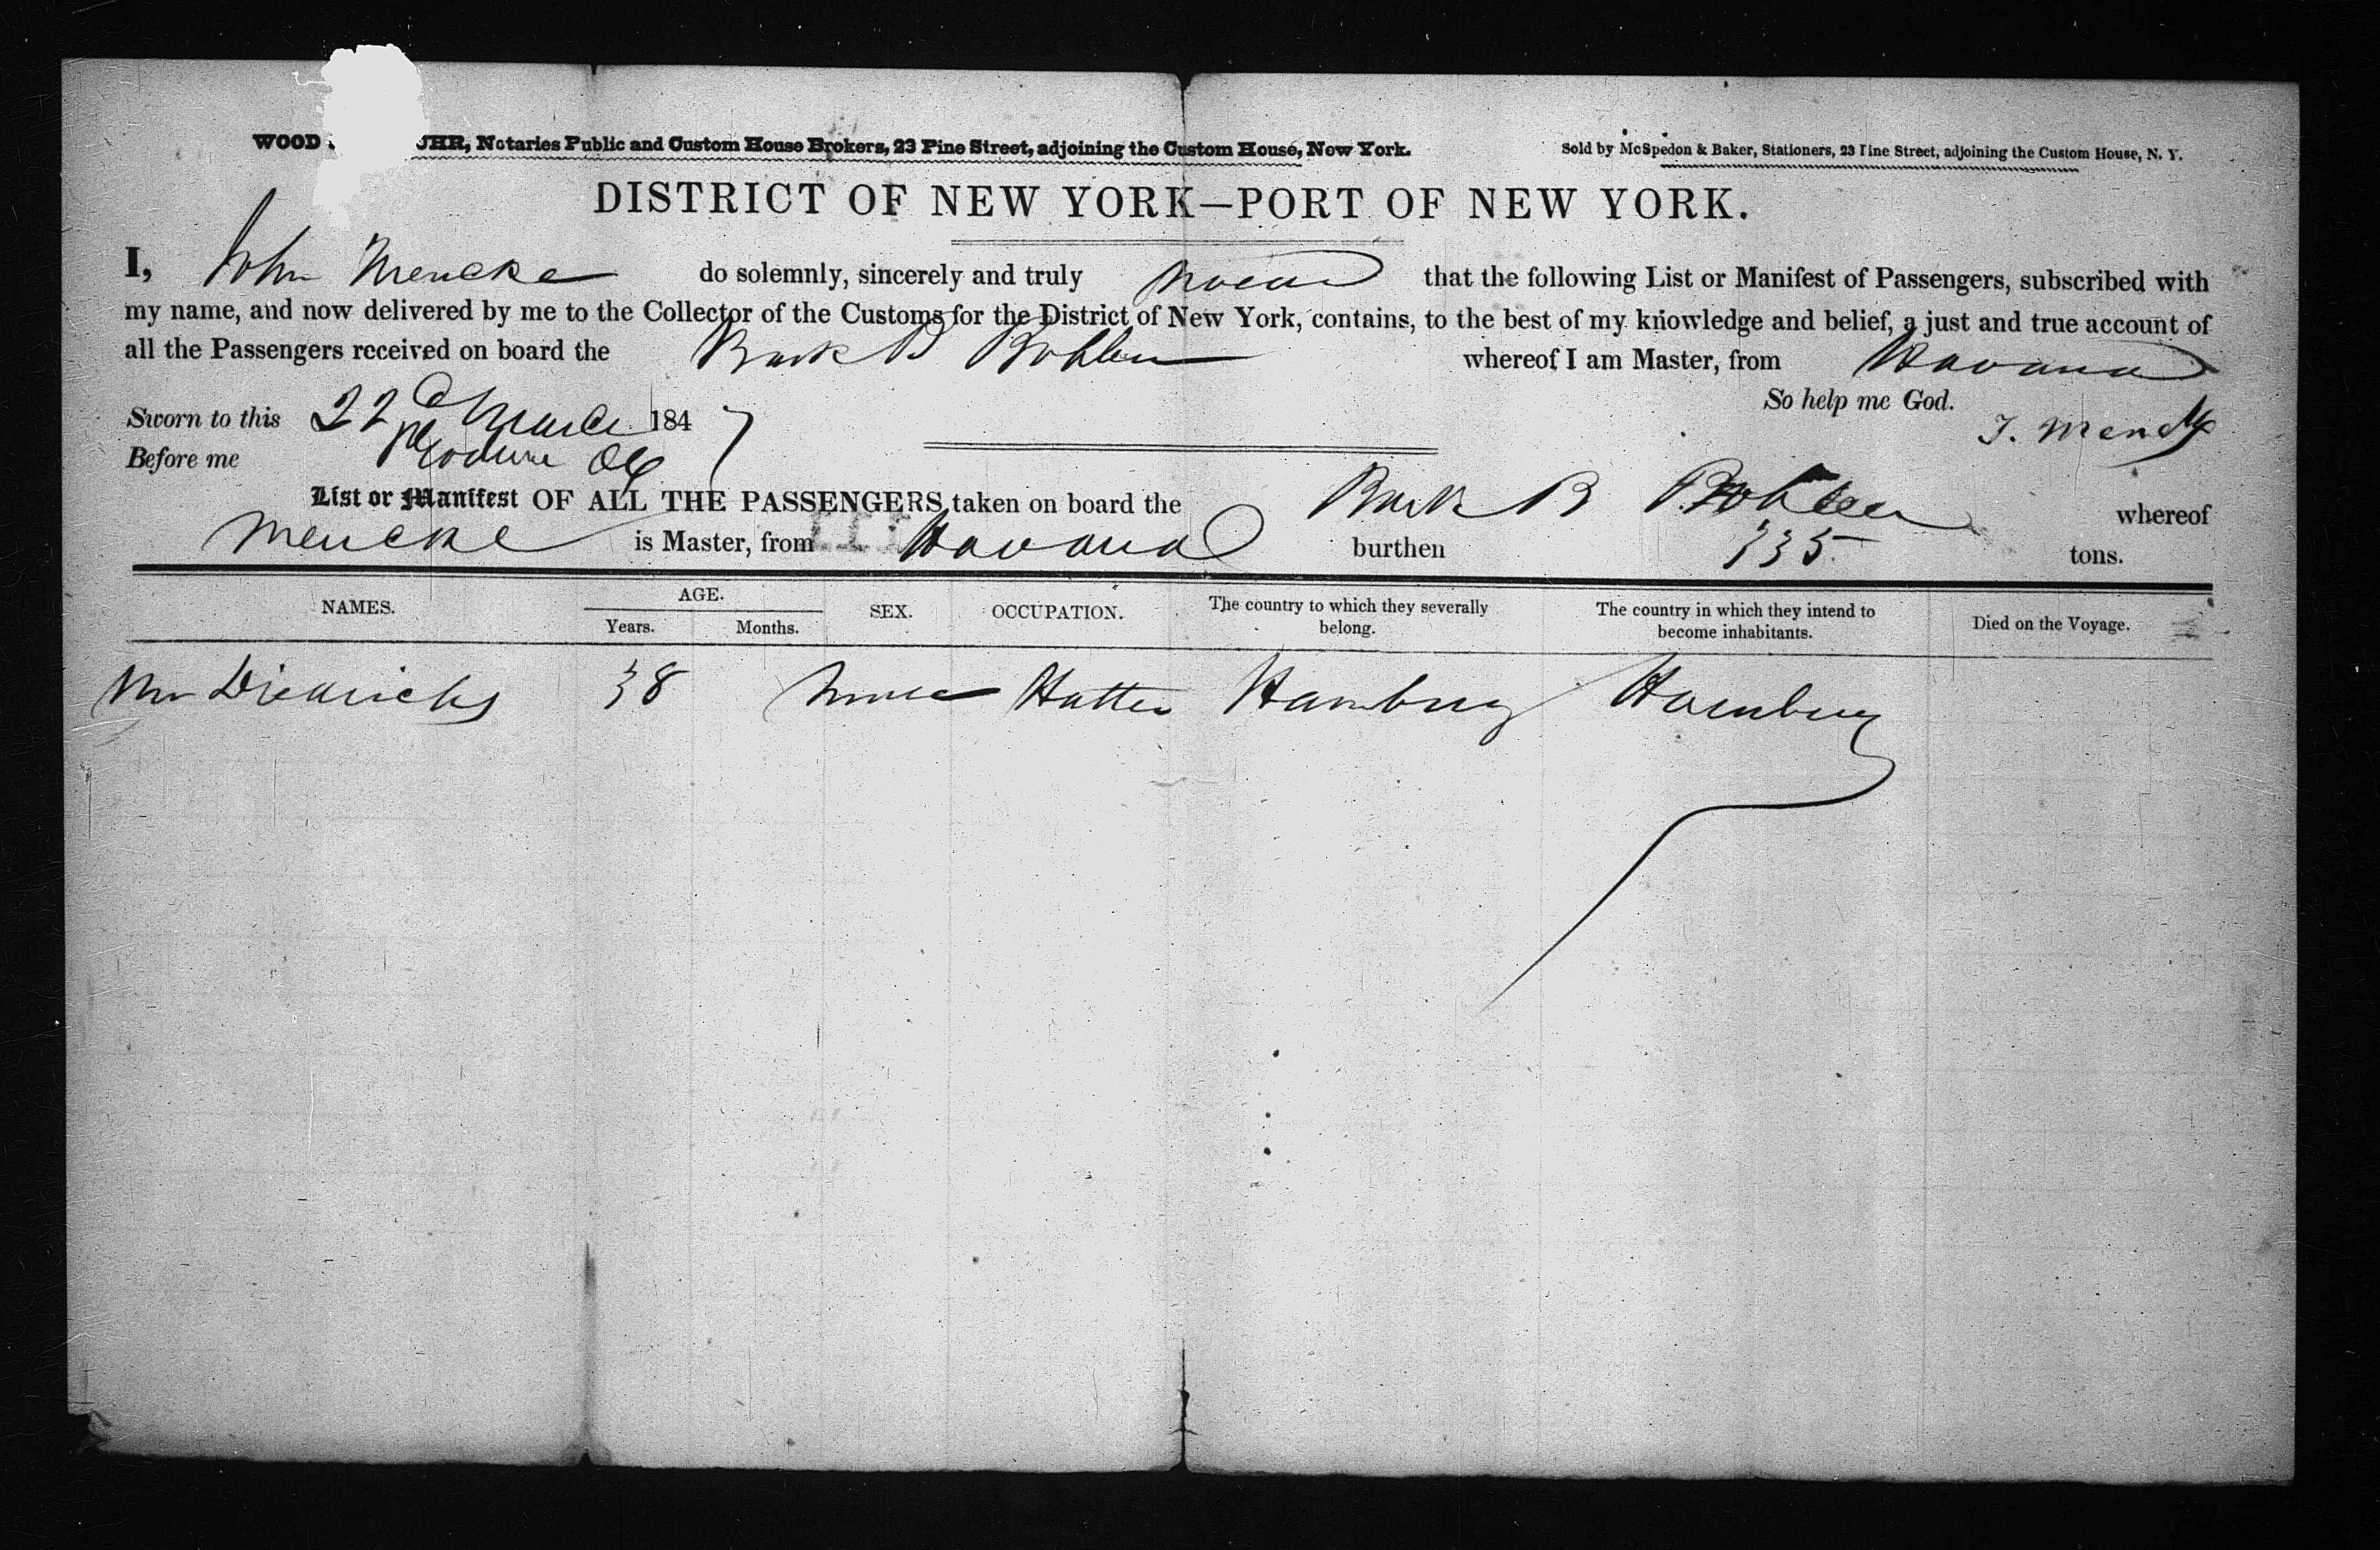 WOOD UHR, Notaries Public and Custom House Brokers, 23 Pine Street, adjoining the Custom House, New York.
Sold by McSpedon & Baker, Stationers, 23 Pine Street, adjoining the Custom House, N. Y.
DISTRICT OF NEW YORK—PORT OF NEW YORK.
I, John Mencke do solemnly, sincerely and truly swear that the following List or Manifest of Passengers, subscribed with
my name, and now delivered by me to the Collector of the Customs for the District of New York, contains, to the best of my knowledge and belief, a just and true account of
all the Passengers received on board the Bark B Bohlen whereof I am Master, from Havana
So help me God.
Sworn to this 22d March 1847
Before me
List or Manifest OF ALL THE PASSENGERS taken on board the Bark B Bohlen whereof
Mencke is Master, from Havana burthen 335 tons.
NAMES. AGE. SEX. OCCUPATION. The country to which they severally belong. The country in which they intend to become inhabitants. Died on the Voyage.
Years. Months.
Mr Diedrichs 38 Male Hatter Hamburg Hamburg